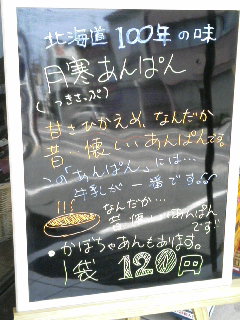 北海道100年の味
月寒あんぱん
(つきさっぷ)
甘さひかえめ、なんだか
昔懐しいあんぱんです。
この「あんぱん」には…
牛乳が一番です
なんだか…
昔懐しいあんぱん
です!!
・かぼちゃあんもあります。
1袋 120円